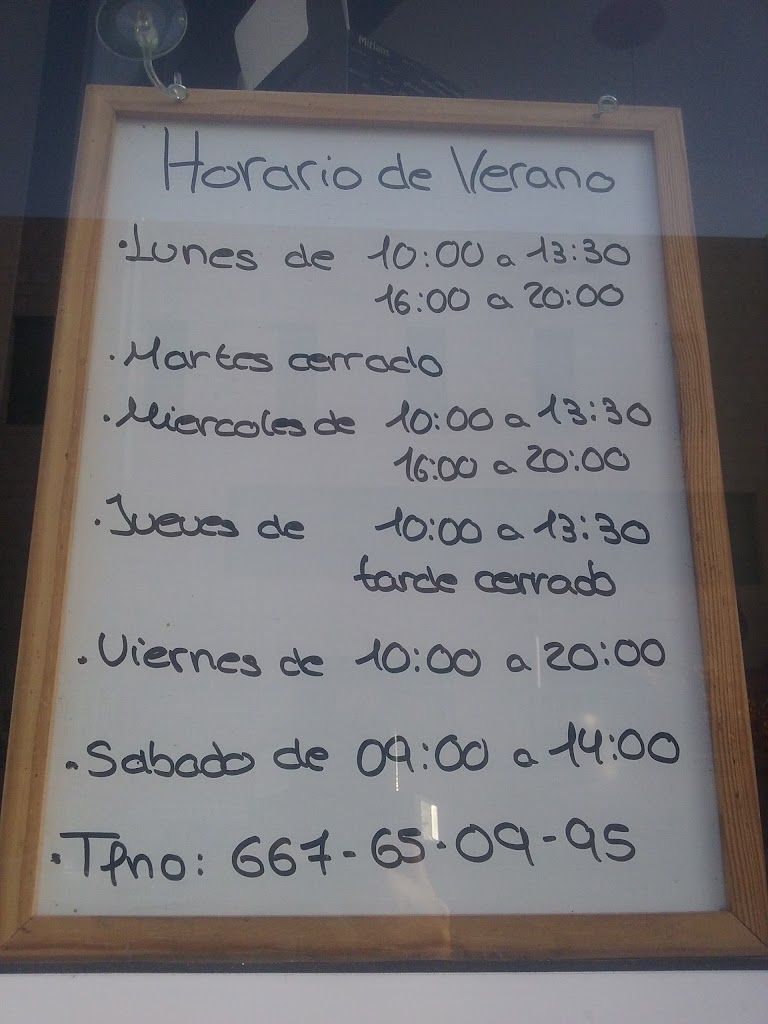 Mirians
Horario de Verano
·Lunes de 10:00 a 13:30
16:00 a 20:00
·Martes cerrado
·Miercoles de 10:00 a 13:30
16:00 a 20:00
·Jueves de 10:00 a 13:30
tarde cerrado
·Viernes de 10:00 a 20:00
·Sabado de 09:00 a 14:00
·Tfno: 667-65-09-95